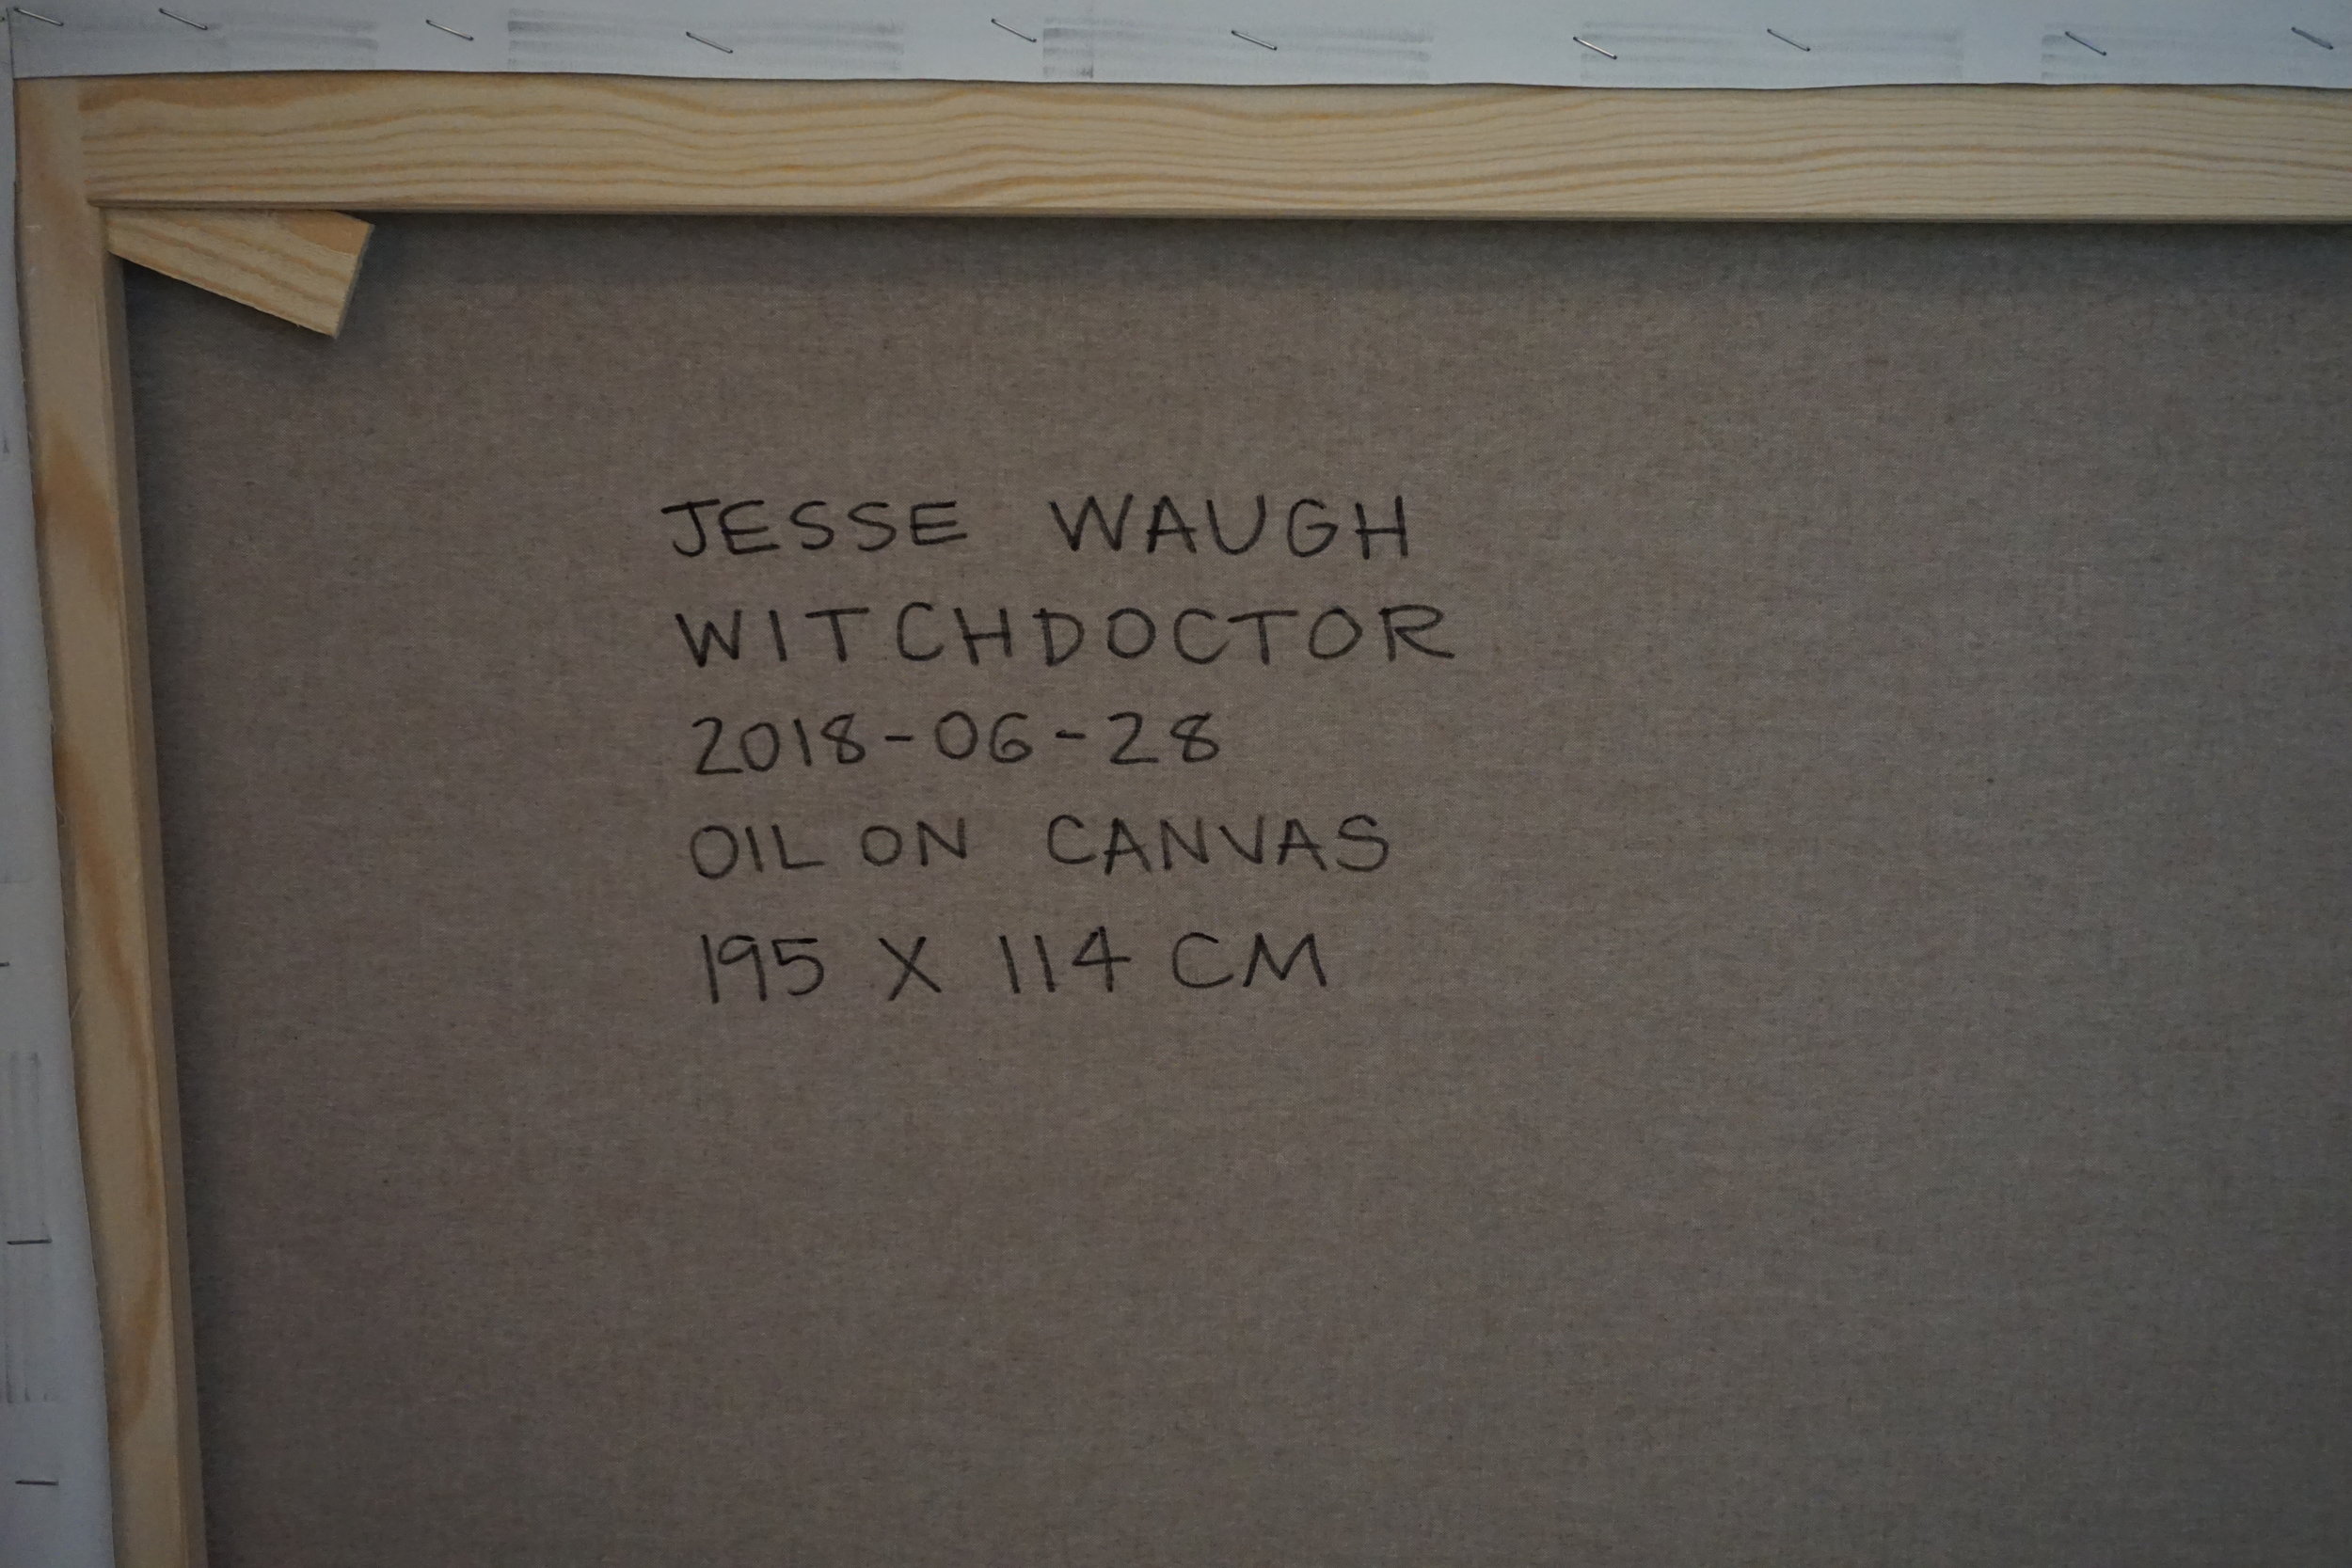 JESSE WAUGH
WITCHDOCTOR
2018-06-28
OIL ON CANVAS
195 X 114 CM